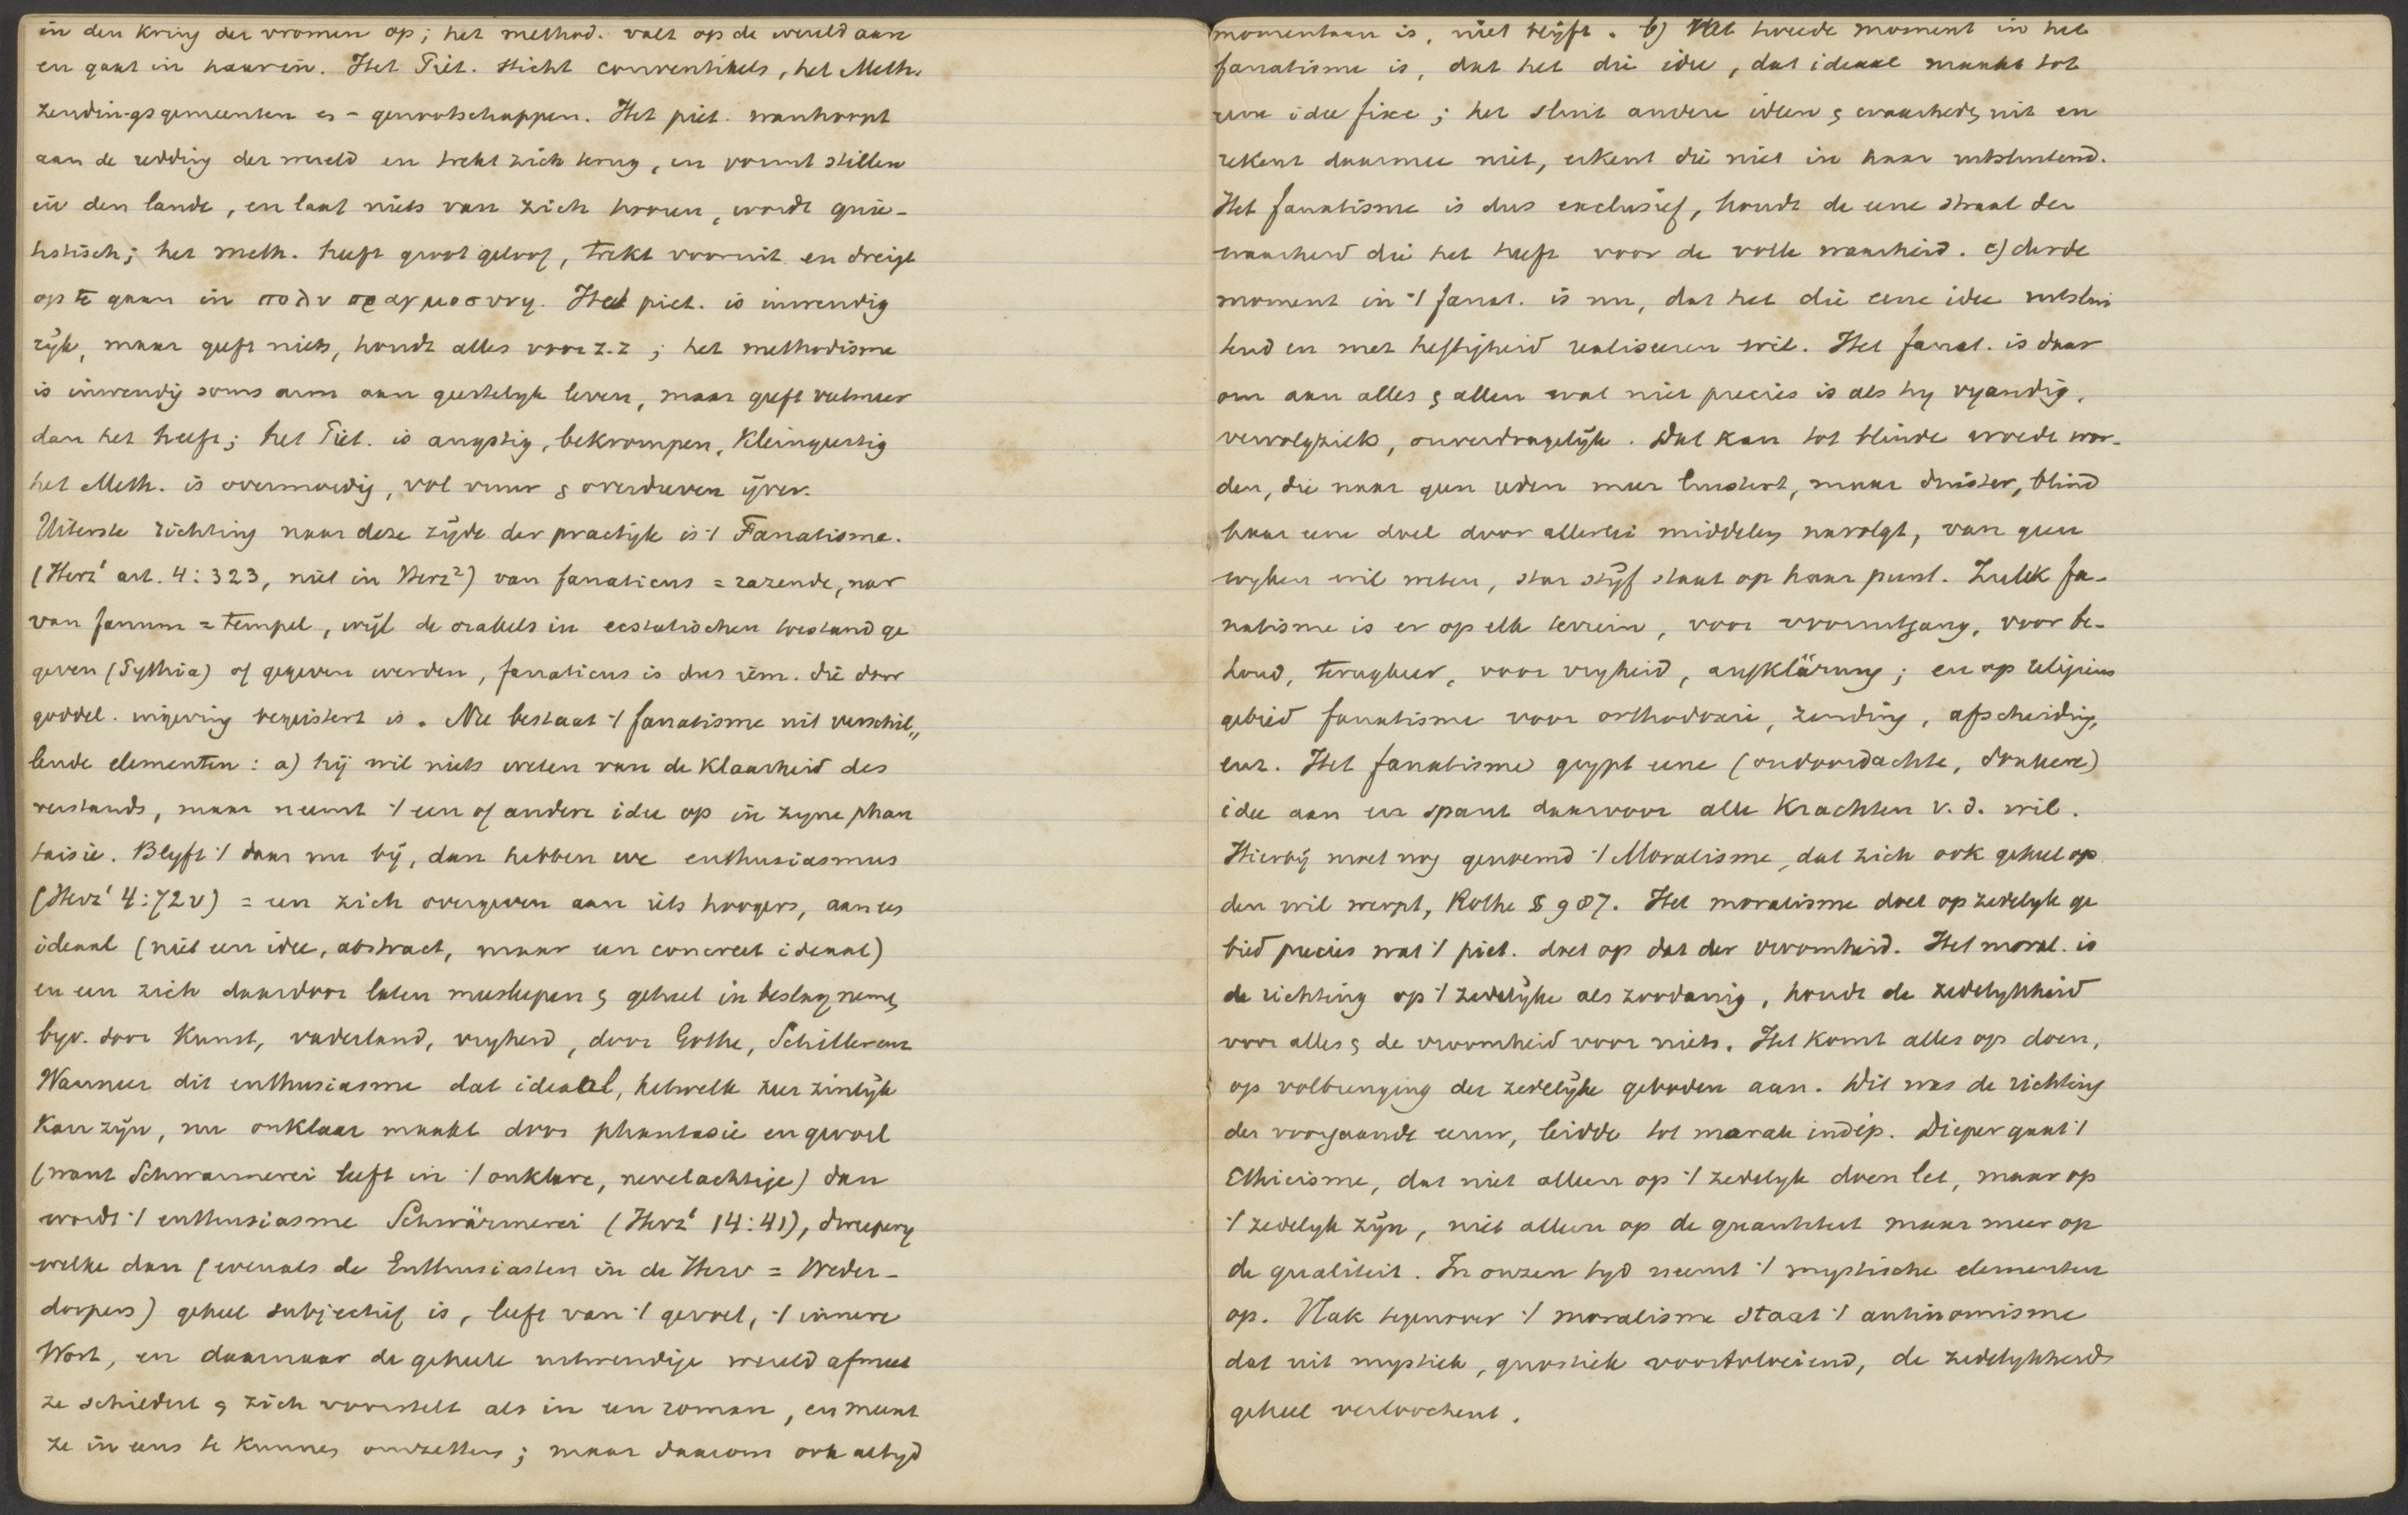 in den kring der vromen op; het method. valt op de wereld aan
en gaat in haar in. Het Piet. sticht conventikels, het Meth.
zendingsgemeenten en -genootschappen. Het piet. wanhoopt
aan de redding der wereld en trekt zich terug, en vormt stillen
in den lande, en laat niets van zich hooren, wordt quië-
tistisch; het meth. heeft groot geloof, trekt vooruit en dreigt
op te gaan in πολυπραγμοσυνη. Het piet. is inwendig
rijk, maar geeft niets, houdt alles voor z.z; het methodisme
is inwendig soms arm aan geestelyk leven, maar geeft veelmeer
dan het heeft; het Piet. is angstig, bekrompen, kleingeestig
het Meth. is overmoedig, vol vuur & overdreven ijver.
Uiterste richting naar deze zijde der practijk is ⁒ Fanatisme.
(Herz¹ art. 4:323, niet in Herz²) van fanaticus = razende, nar
van fanum = tempel, wijl de orakels in ecstatischen toestand ge
geven (Pythia) of gegeven werden, fanaticus is dus iem. die door
goddel. ingeving begeistert is. Nu bestaat ⁒ fanatisme uit verschil„
lende elementen: a) hij wil niets weten van de klaarheid des
verstands, maar neemt ⁒ een of andere idee op in zyne phan
taisie. Blyft ⁒ daar nu bij, dan hebben we enthusiasmus
(Herz¹ 4:72v) = een zich overgeven aan iets hoogers, aan een
ideaal (niet een idee, abstract, maar een concreet ideaal)
en een zich daardoor laten meeslepen & geheel in beslag nemen
byv. door Kunst, vaderland, vryheid, door Göthe, Schiller enz
Wanneer dit enthusiasme dat ideaal, hetwelk zeer zinlijk
kan zijn, nu onklaar maakt door phantasie en gevoel
(want Schwarmerei leeft in ⁒ onklare, nevelachtige) dan
wordt ⁒ enthusiasme Schwärmerei (Herz¹ 14:41), dweepery
welke dan (evenals de Enthusiasten in de Herv = Weder-
doopers) geheel subjectief is, leeft van ⁒ gevoel, ⁒ innere
Wort, en daarnaar de geheele uitwendige wereld afmeet
ze schildert & zich voorstelt als in een roman, en meent
ze in eens te kunnen omzetten; maar daarom ook altyd
momentaan is, niet blijft. b) Het tweede moment in het
fanatisme is, dat het die idee, dat ideaal maakt tot
eene idee fixe; het sluit andere ideen & waarheden uit en
rekent daarmee niet, erkent die niet in haar uitsluitend.
Het fanatisme is dus exclusief, houdt de eene straal der
waarheid die het heeft voor de volle waarheid. c) derde
moment in ⁒ fanat. is nu, dat het die eene idee uitslui
tend en met heftigheid realiseeren wil. Het fanat. is daar
om aan alles & allen wat niet precies is als hy vyandig,
vervolgziek, onverdragelijk. Dat kan tot blinde woede wor-
den, die naar geen reden meer luistert, maar duister, blind
haar eene doel door allerlei middelen navolgt, van geen
wyken wil weten, star stijf staat op haar punt. Zulk fa-
natisme is er op elk terrein, voor vooruitgang, voor be-
houd, terugkeer, voor vryheid, aufklärung; en op religieus
gebied fanatisme voor orthodoxie, zending, afscheiding,
enz. Het fanatisme grypt eene (ondoordachte, donkere)
idee aan en spant daarvoor alle krachten v.d. wil.
Hierbij moet nog genoemd ⁒ Moralisme, dat zich ook geheel op
den wil werpt, Rothe § 987. Het moralisme doet op zedelyk ge
bied precies wat ⁒ piet. doet op dat der vroomheid. Het moral. is
de richting op ⁒ zedelijke als zoodanig, houdt de zedelykheid
voor alles & de vroomheid voor niets. Het komt alles op doen,
op volbrenging der zedelijke geboden aan. Dit was de richting
der voorgaande eeuw, leidde tot morale indép. Dieper gaat ⁒
Ethicisme, dat niet alleen op ⁒ zedelyk doen let, maar op
⁒ zedelyk zijn, niet alleen op de quantiteit maar meer op
de qualiteit. In onzen tyd neemt ⁒ mystische elementen
op. Vlak tegenover ⁒ moralisme staat ⁒ antinomisme
dat uit mystiek, gnostiek voortvloeiend, de zedelykheid
geheel verloochent.